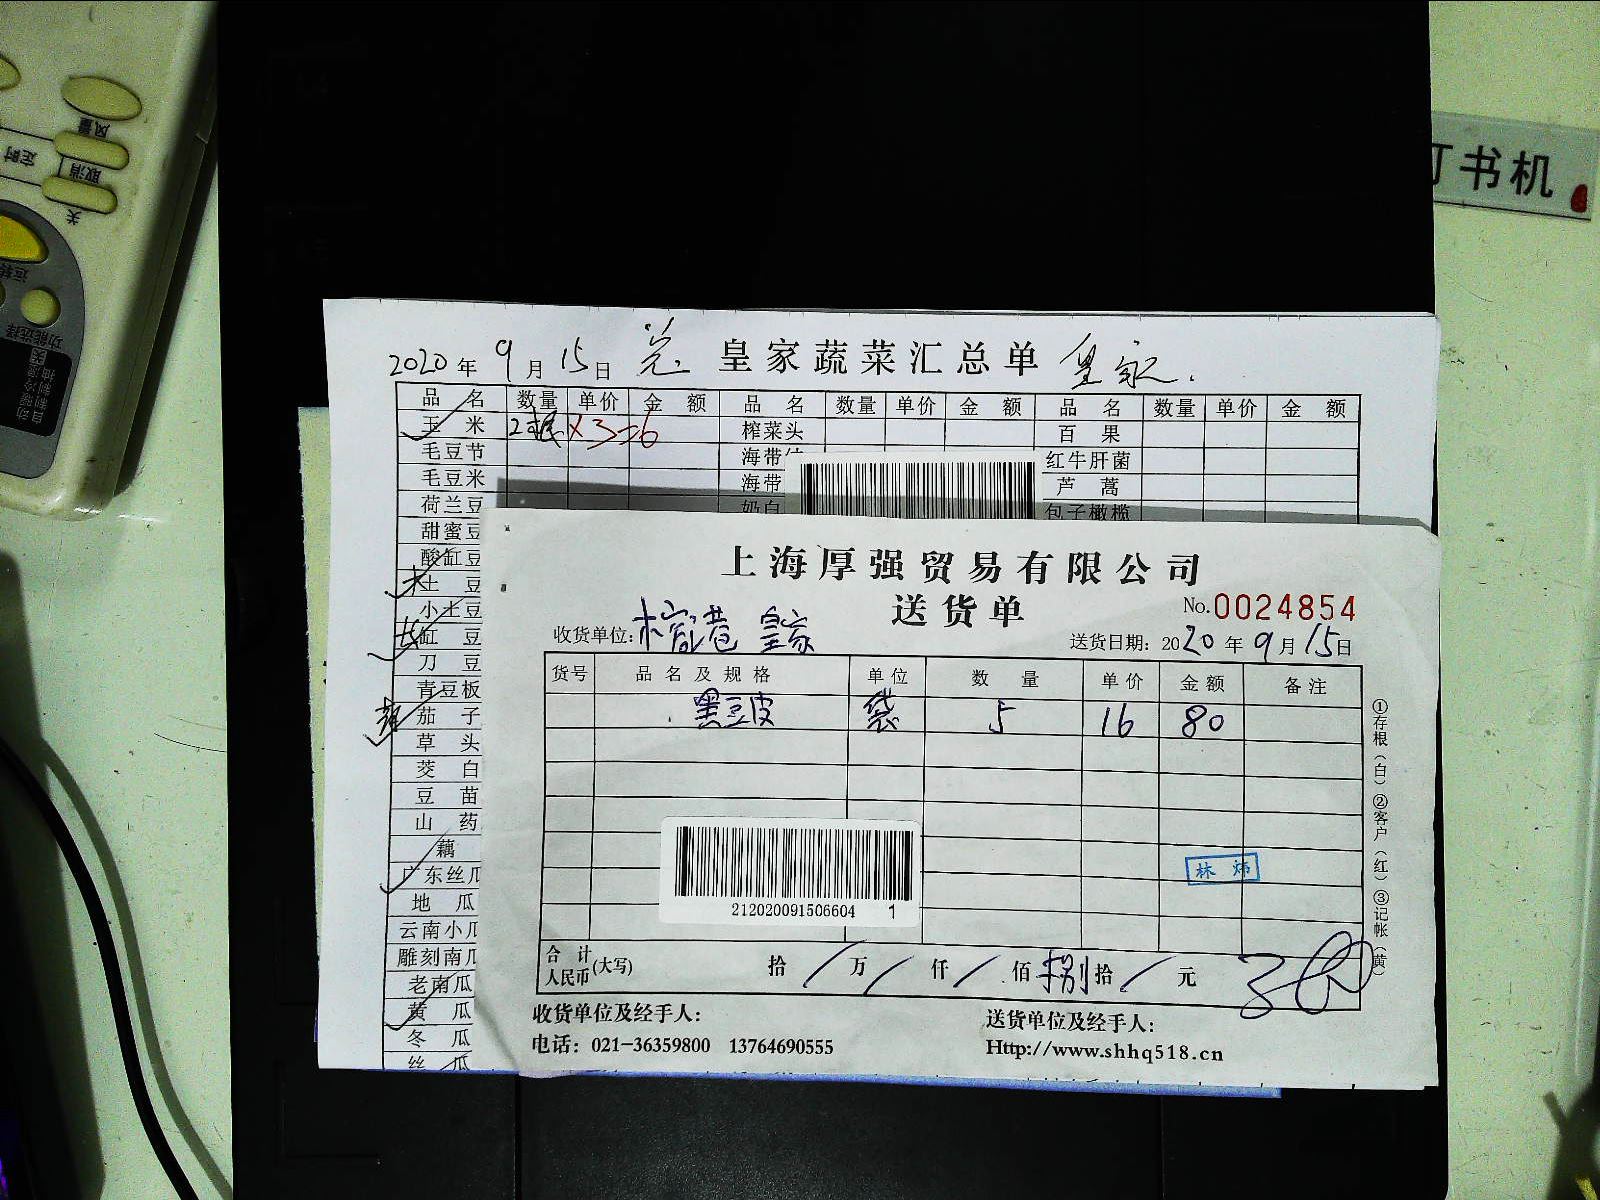 风量
定时
取消
关
运转
功能选择
订书机
2020年 9月 15日 皇家蔬菜汇总单 皇家.
品 名 数量 单价 金 额 品 名 数量 单价 金 额 品 名 数量 单价 金 额
玉 米 2根 ×3=6 榨菜头 百 果
毛豆节 海带 红牛肝菌
毛豆米 海带 芦 蒿
荷兰豆 奶白 包子橄榄
甜蜜豆
酸缸豆
土 豆
小土豆
长缸 豆
刀 豆
青豆板
茄 子
草 头
茭 白
豆 苗
山 药
藕
广东丝瓜
地 瓜
云南小瓜
雕刻南瓜
老南瓜
黄 瓜
冬 瓜
丝 瓜
上海厚强贸易有限公司
送货单 No.0024854
收货单位: 皇家 送货日期: 2020年 9月 15日
货号 品名及规格 单位 数 量 单价 金额 备注
黑豆皮 袋 5 16 80
林炜
212020091506604 1
合 计
人民币(大写) 拾 / 万 / 仟 / 佰 捌 拾 / 元
收货单位及经手人: 送货单位及经手人:
电话: 021-36359800 13764690555 Http://www.shhq518.cn
①存根(白)②客户(红)③记帐(黄)